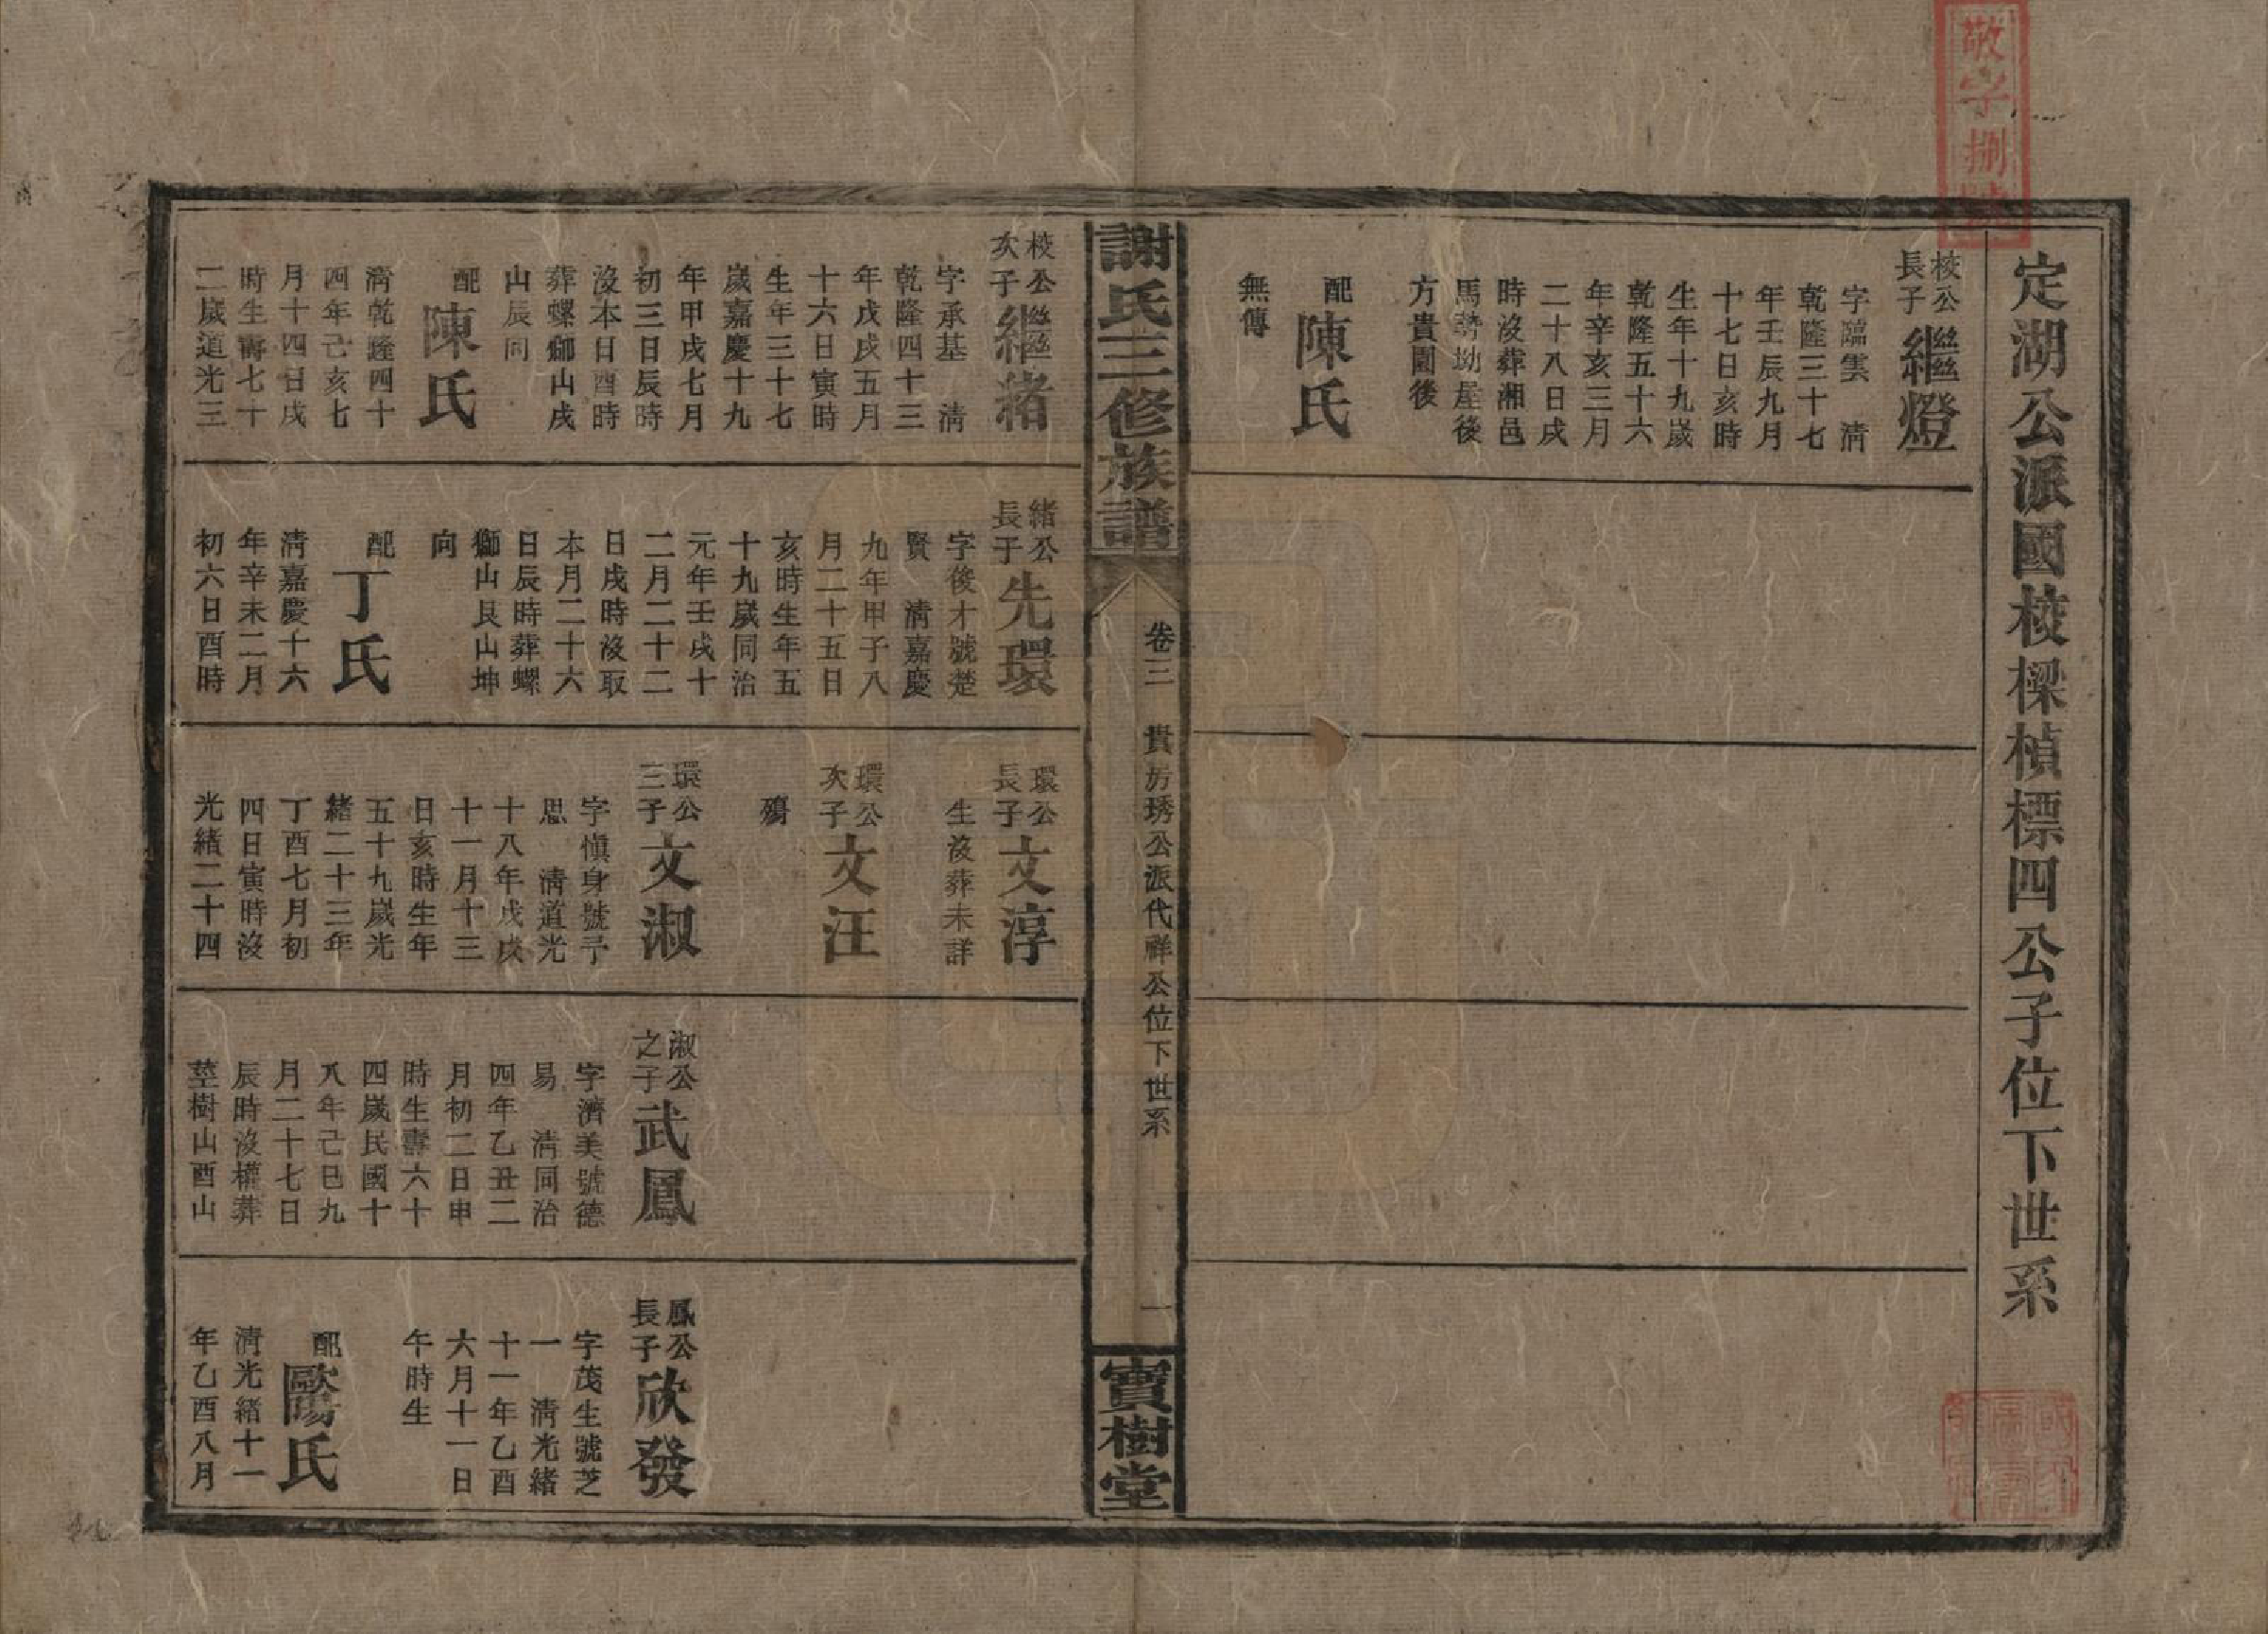 敬字捌號
定湖公派國校樑楨標四公子位下世系
校公
長子
繼燈
字臨雲　清
乾隆三十七
年壬辰九月
十七日亥時
生年十九歲
乾隆五十六
年辛亥三月
二十八日戌
時沒葬湘邑
馬勞坳屋後
方貴園後
配
陳氏
無傳
謝氏三修族譜
卷三
貴房琇公派代祥公位下世系
一
寶樹堂
校公
次子
繼緒
字承基　清
乾隆四十三
年戊戌五月
十六日寅時
生年三十七
歲嘉慶十九
年甲戌七月
初三日辰時
沒本日酉時
葬螺獅山戌
山辰向
配
陳氏
清乾隆四十
四年己亥七
月十四日戌
時生壽七十
二歲道光三
緒公
長子
先環
字後才號楚
賢　清嘉慶
九年甲子八
月二十五日
亥時生年五
十九歲同治
元年壬戌十
二月二十二
日戌時沒取
本月二十六
日辰時葬螺
獅山艮山坤
向
配
丁氏
清嘉慶十六
年辛未二月
初六日酉時
環公
長子
文淳
生沒葬未詳
環公
次子
文汪
殤
環公
三子
文淑
字愼身號予
思　清道光
十八年戊戌
十一月十三
日亥時生年
五十九歲光
緒二十三年
丁酉七月初
四日寅時沒
光緒二十四
淑公
之子
武鳳
字濟美號德
易　清同治
四年乙丑二
月初二日申
時生壽六十
四歲民國十
八年己巳九
月二十七日
辰時沒權葬
莖樹山酉山
鳳公
長子
欣發
字茂生號芝
一　清光緒
十一年乙酉
六月十一日
午時生
配
歐陽氏
清光緒十一
年乙酉八月